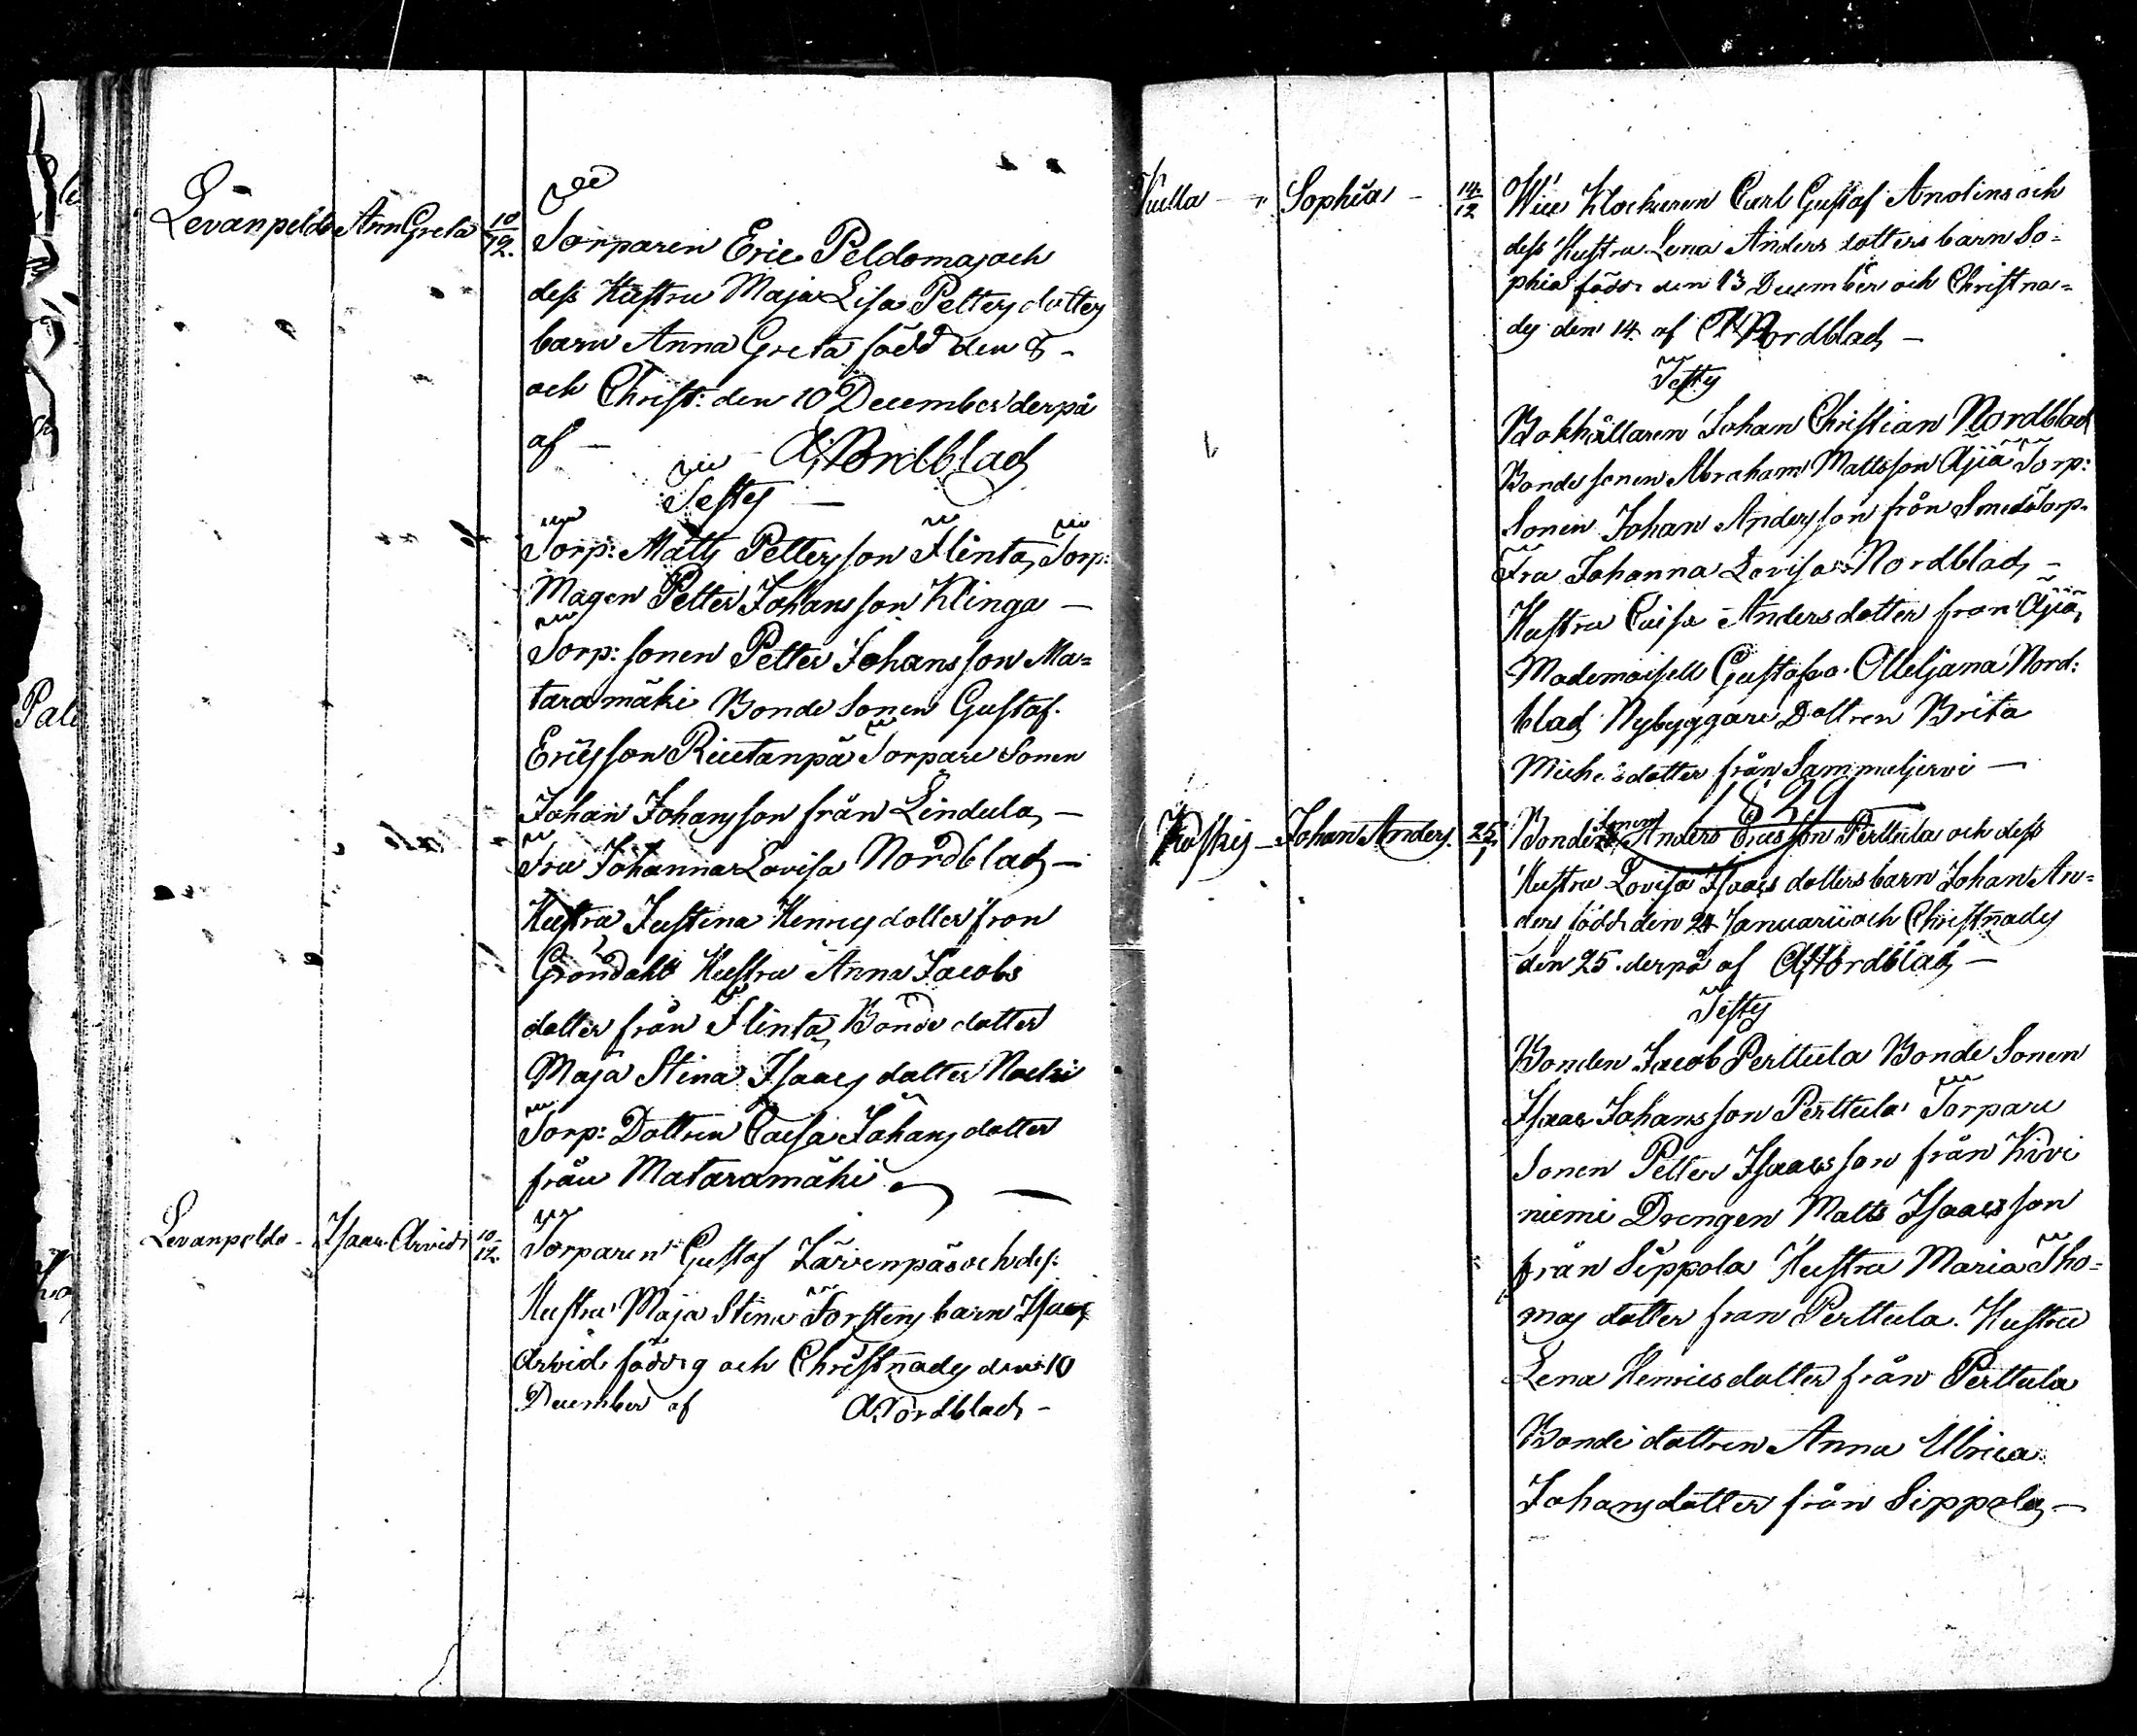 Levanpeldo Ann Greta 10/12. Torparen Eric Peldomas och
dess Hustru Maja Lisa Petters dotters
barn Anna Greta född den 8 -
och Christ: den 10 December derpå
af - A; Nordblad
Testes -
Torp: Matts Pettersson Flinta, Torp:
Magen Petter Johansson Klinga -
Torp: sonen Petter Johansson Ma=
taramäki Bonde Sonen Gustaf
Ericsson Torpare Sonen
Johan Johansson från Lindula, -
Fru Johanna Lovisa Nordblad, -
Hustru Justina Henrics dotter från
Gröndahl Hustru Anna Jacobs
dotter från Flinta, Bonde dotter
Maja Stina Isaacs dotter
Torp: Dottren Caisa Johans dotter
från Mataramäki -
Levanpeldo - Isaac Arvid 10/12. Torparen Gustaf Järvenpää och des:
Hustru Maja Stina Torstens barn Isaac
Arvid född 9 och Christnades den 10
December af A: Nordblad -
Kulla - " Sophia - 14/12 Wice Klockaren Carl Gustaf Anolins och
dess Hustru Lena Anders dotters barn So=
phia född den 13 December och Christna=
des den 14. af A Nordblad, -
Testes
Bokhållaren Johan Christian Nordblad
Bondesonen Abraham Mattsson Äjiä Torp:
Sonen Johan Andersson från Smeds Torp.
Fru Johanna Lovisa Nordblad, -
Hustru Caisa Anders dotter från Äjiä,
Mademoisell Gustafva Nord:
blad, Nybyggare Dottren Brita
Michelsdotter från Sammuljervi -
1829
Koskis - Johan Anders. 25/1 Bonde sonens Anders Ericsson Perttula och dess
Hustru Lovisa Isaacs dotters barn Johan An=
ders född den 24 Januarii och Christnades
den 25. derpå af A Nordblad, -
Testes
Bonden Jacob Perttula Bonde Sonen
Isaac Johansson Perttula Torpare
Sonen Petter Isaacsson från Kivi
niemi Drengen Matts Isaacsson
från Sippola Hustru Maria Tho=
mas dotter fran Perttula. Hustru
Lena Henrics dotter från Perttula
Bonde dottren Anna Ulrica
Johans dotter från Sippola, -